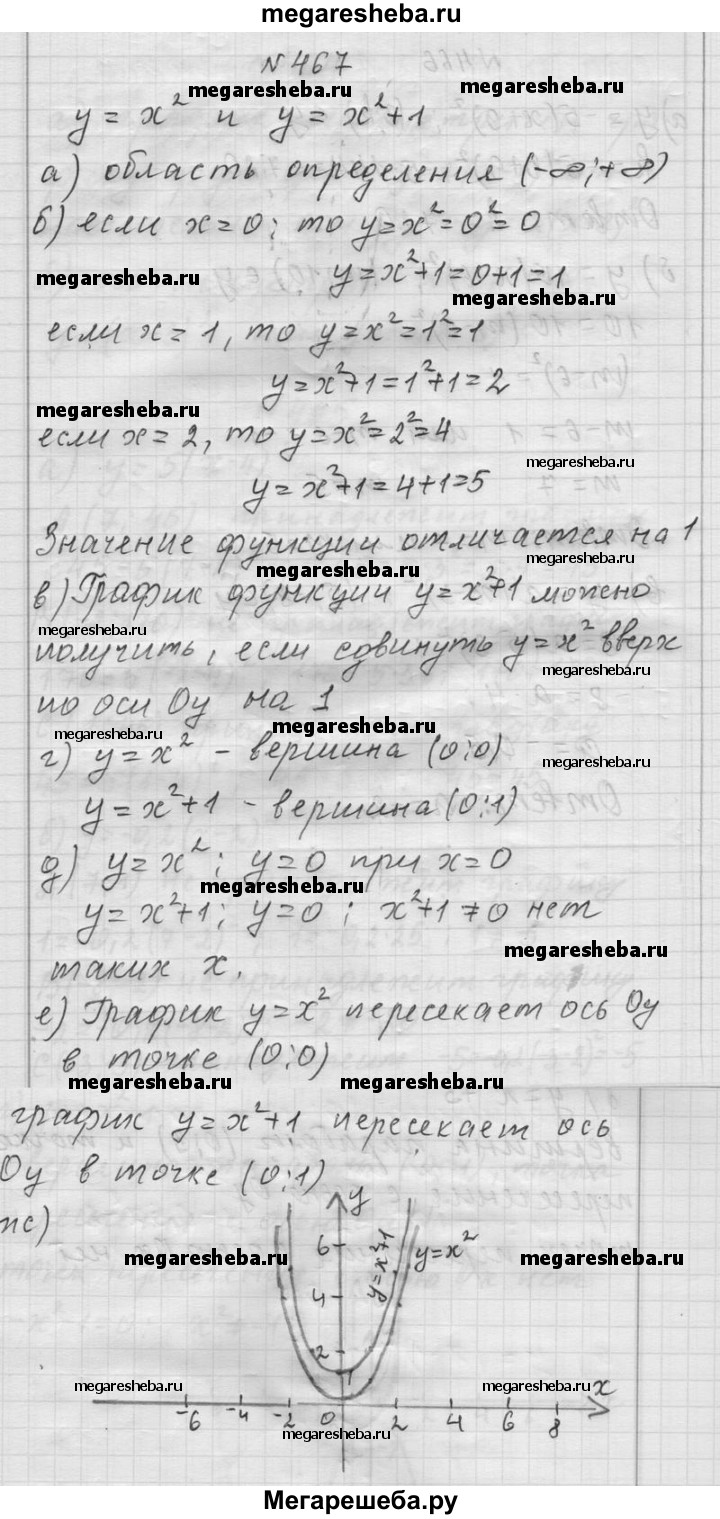 megaresheba.ru
N 467
megaresheba.ru megaresheba.ru
y = x² и y = x²+1
а) область определения (-∞;+∞)
б) если x=0; то y=x²=0²=0
megaresheba.ru y=x²+1=0+1=1
megaresheba.ru
если x=1, то y=x²=1²=1
y=x²+1=1²+1=2
megaresheba.ru
если x=2, то y=x²=2²=4
megaresheba.ru
y=x²+1=4+1=5
Значение функции отличается на 1
megaresheba.ru megaresheba.ru
в) График функции y=x²+1 можно
megaresheba.ru
получить, если сдвинуть y=x² вверх
megaresheba.ru
по оси Oy на 1
megaresheba.ru megaresheba.ru
г) y=x² - вершина (0;0)
megaresheba.ru
y=x²+1 - вершина (0;1)
д) y=x²; y=0 при x=0
megaresheba.ru
y=x²+1; y=0; x²+1≠0 нет
megaresheba.ru
таких x.
е) График y=x² пересекает ось Oy
в точке (0;0)
megaresheba.ru megaresheba.ru
график y=x²+1 пересекает ось
Oy в точке (0;1)
ж)
y
6
y=x²+1 y=x²
megaresheba.ru megaresheba.ru
4
2
1
megaresheba.ru megaresheba.ru x
-6 -4 -2 0 2 4 6 8
megaresheba.ru
Мегарешеба.ру